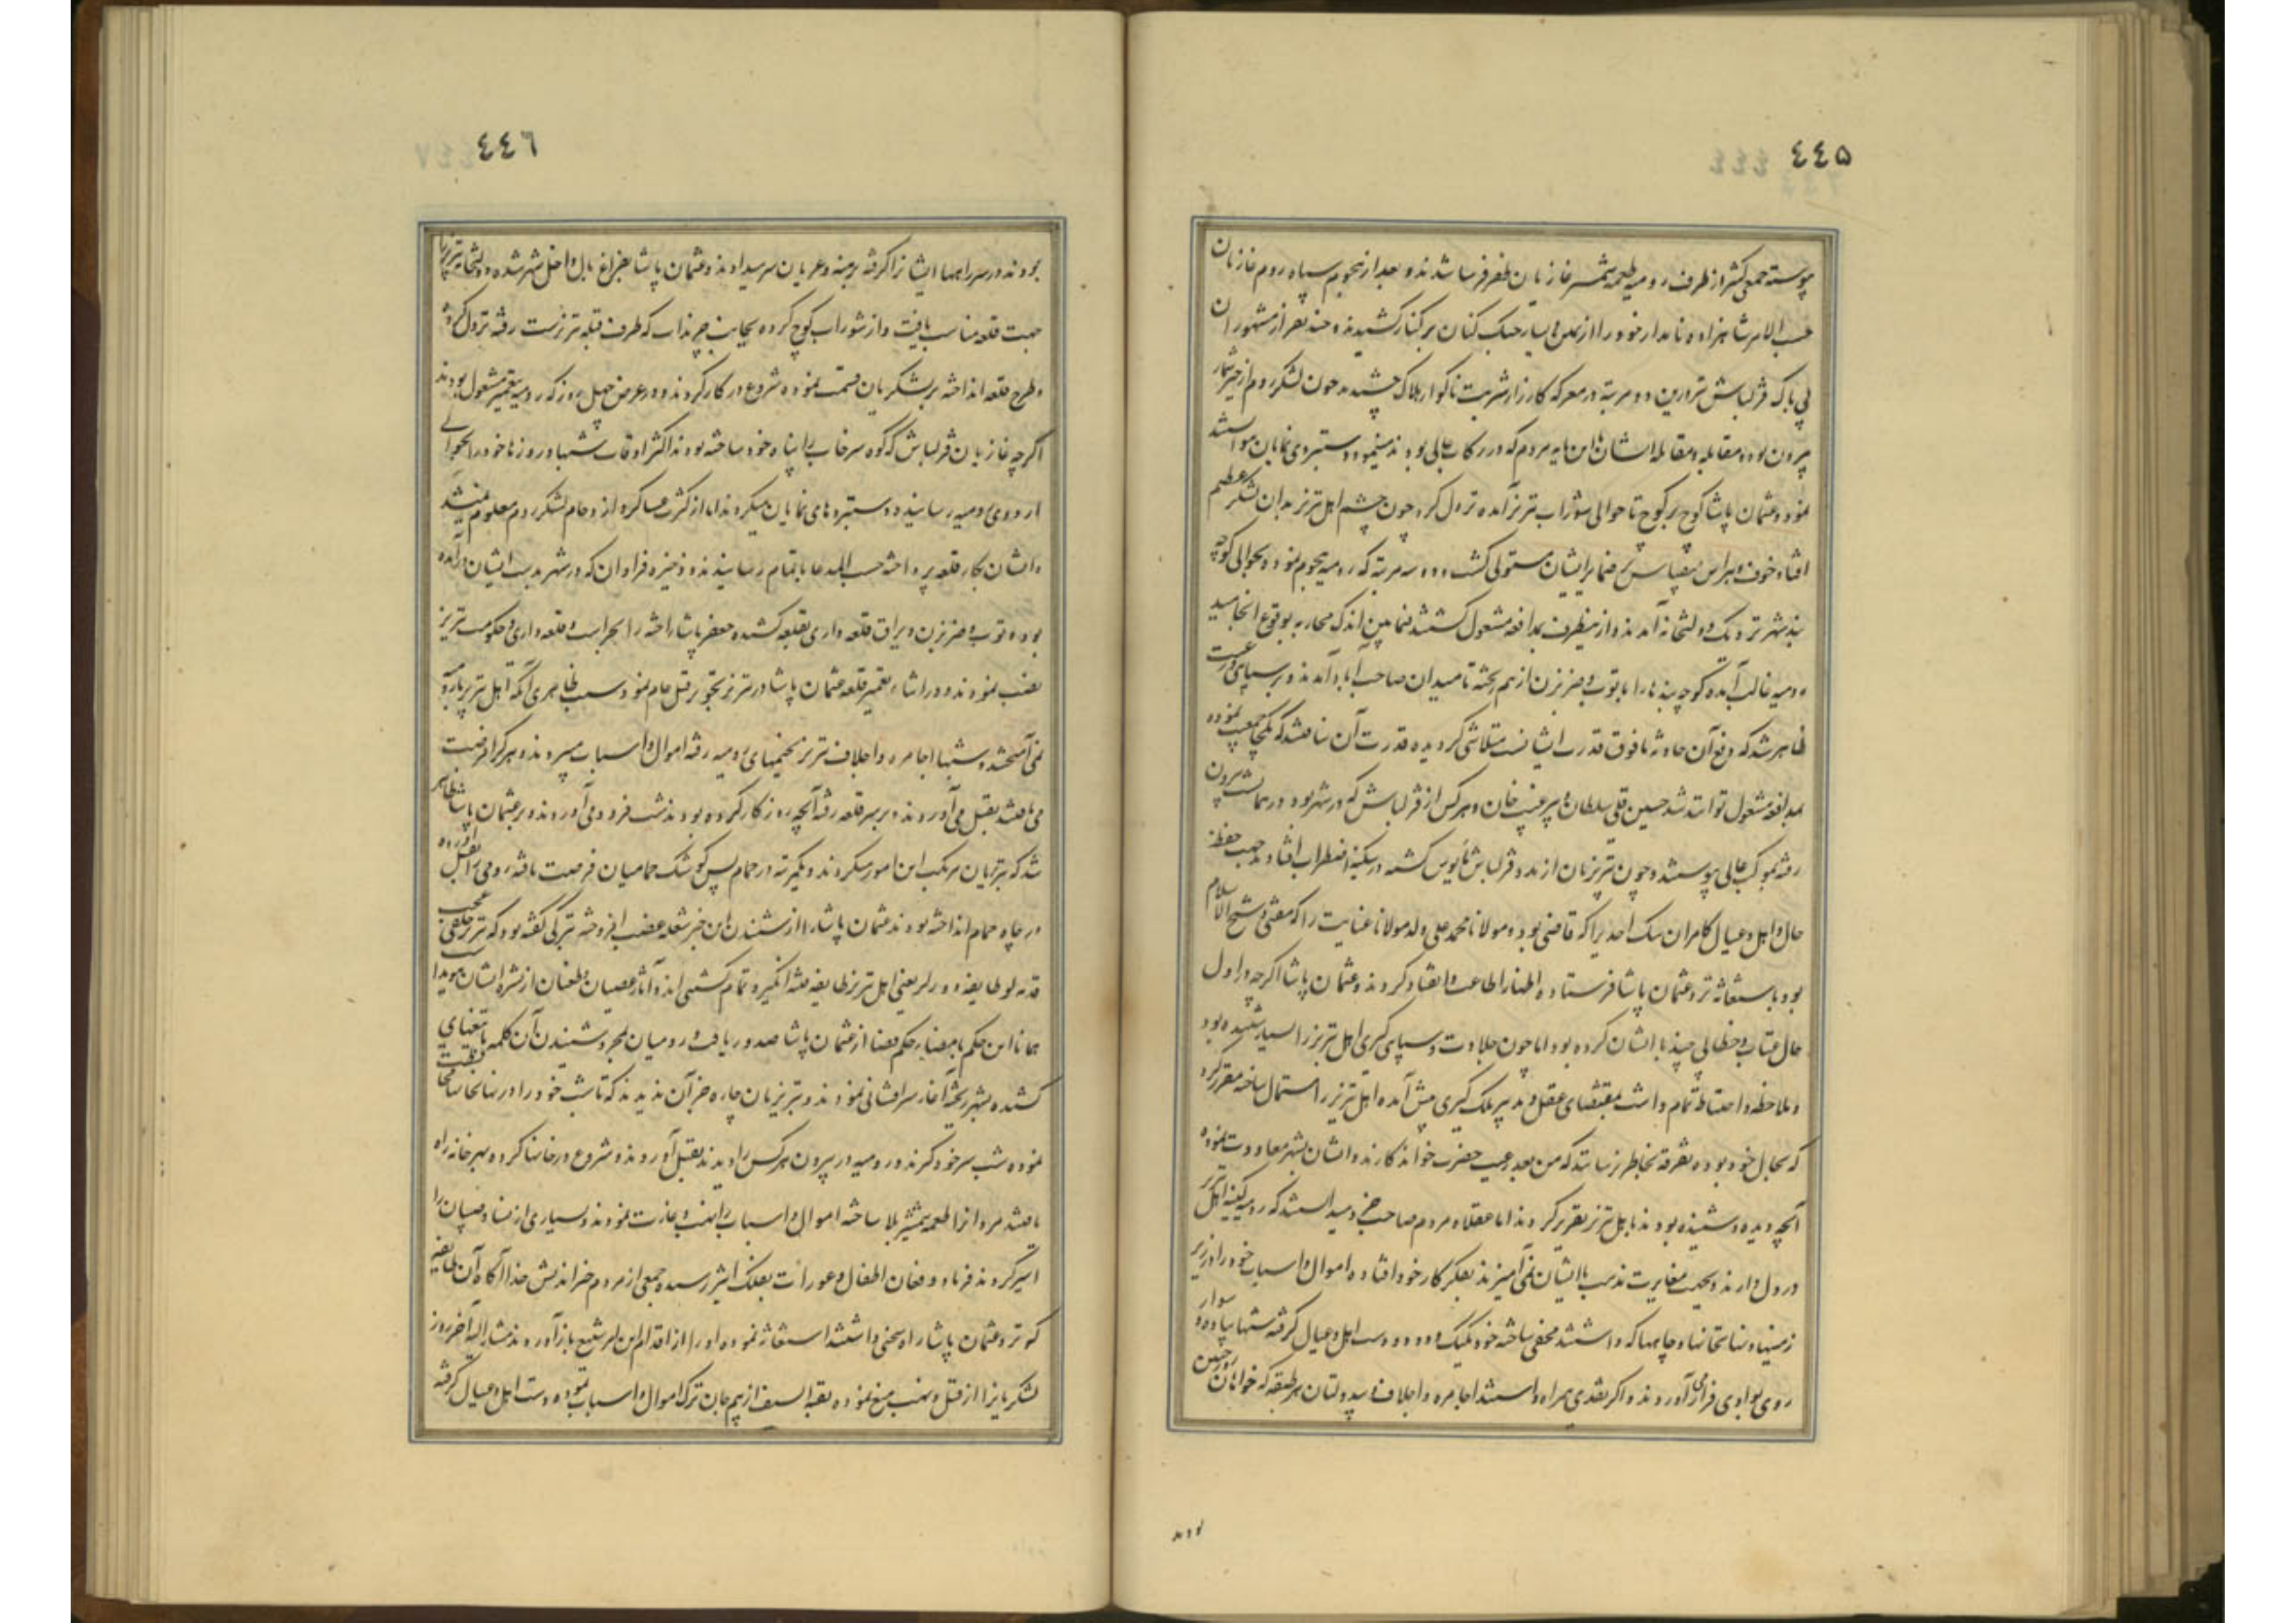 ٤٤٥
پیوسته جمعی کثیر از طرف رومیه طعمه شمشیر غازیان ظفر فرسا شدند و بعد از هجوم سپاه روم غازیان
حسب الامر شاهزاده نامدار خود را از یمین و یسار جنک کنان بر کنار کشیدند و چند نفر از مشهوران
بی باک قزلباش درین دو مرتبه در معرکه کارزار شربت ناکوار هلاک چشیدند چون لشکر روم از حیز شمار
بیرون بود و مقابله و مقاتله ایشان باین مایه مردم که در رکاب عالی بودند مینمود و دستبردی نمایان
نمود و عثمان پاشا کوچ بر کوچ تا حوالی شوراب تبریز آمده نزول کرد چون چشم اهل تبریز بدان لشکر عظیم
افتاد خوف و هراس بیقیاس بر ضمایر ایشان مستولی کشت و دو سه مرتبه که رومیه هجوم نموده بحوالی کوچه
بند شهر نزدیک دولتخانه آمدند و ازینطرف بمدافعه مشغول کشتند فیمابین اندک محاربه بوقوع انجامید
رومیه غالب آمده کوچه بندها را با توب و ضربزن از هم ریخته تا میدان صاحب آباد آمدند و بر سپاهی و رعیت
ظاهر شد که دفع آن حادثه ما فوق قدرت ایشانست متلاشی کردیده قدرت آن نیافتند که یکجا جمعیت نموده
بمدافعه مشغول توانند شد حسین قلی سلطان و پیر غیب خان و هر کس از قزلباش که در شهر بود در همان شب بیرون
رفته بموکب عالی پیوستند و چون تبریزیان از مدد قزلباش مأیوس کشته در سکنه اضطراب افتاد بجهت حفظ
حال و اهل و عیال کامران بیک احدی را که قاضی بود و مولانا محمد علی ولد مولانا عنایت را که مفتی و شیخ الاسلام
بود باستغاثه نزد عثمان پاشا فرستاده اظهار اطاعت و انقیاد کردند و عثمان پاشا اکرچه در اول
حال عتاب و خطابی چند با ایشان کرده بود اما چون جلادت و سپاهی کری اهل تبریز را بسیار شنیده بود
و ملاحظه و احتیاط تمام داشت بمقتضای عقل و تدبیر ملک کیری پیش آمده اهل تبریز را استمالت ساخته مقرر کرد
که بحال خود بوده تفرقه بخاطر نرسانند که من بعد رعیت حضرت خواندکارند و ایشان بشهر معاودت نموده
آنچه دیده و شنیده بودند باهل تبریز تقریر کردند اما عقلا و مردم صاحب خرد میدانستند که رومیه کینه اهل تبریز
در دل دارند و بجهت مغایرت مذهب با ایشان نمی آمیزند بفکر کار خود افتاده اموال و اسباب خود را در زیر
زمینها و نهانخانها و چاهها که داشتند مخفی ساخته خود یکیک و دو دو دست اهل و عیال کرفته شبها پیاده و سوار
روی بوادی فرار می آوردند و اکر نقدی همراه داشتند اجامره و اجلاف و بیدولتان هر طبقه که خواهان چنین روز
بودند
٤٤٦
بودند در سر راهها ایشانرا کرفته برهنه و عریان سر میدادند و عثمان پاشا بفراغ بال داخل شهر شده دولتخانه تبریز را
جهت قلعه مناسب یافت و از شوراب کوچ کرده بجانب چرنداب که طرف قبله تبریزست رفته نزول کرده
و طرح قلعه انداخته بر لشکریان قسمت نموده شروع در کار کردند و در عرض چهل روز که رومیه بتعمیر مشغول بودند
اکرچه غازیان قزلباش که کوه سرخاب را پناه خود ساخته بودند اکثر اوقات شبها و روزها خود را بحوالی
اردوی رومیه رسانیده دستبردهای نمایان میکردند اما از کثرت عساکر و ازدحام لشکر روم معلوم نمیشد
و ایشان بکار قلعه پرداخته حسب المدعا باتمام رسانیدند و ذخیره فراوان که در شهر بدست ایشان درآمده
بود و توب و ضربزن و یراق قلعه داری بقلعه کشیده جعفر پاشا را بحراست قلعه داری و حکومت تبریز
نصب نمودند و در اثناء تعمیر قلعه عثمان پاشا در تبریز تجویز قتل عام نمود و سبب ظاهری آنکه اهل تبریز با رومیه
نمی آمیختند و شبها اجامره و اجلاف تبریز بخیمهای رومیه رفته اموال و اسباب میبردند و هر کرا فرصت
می یافتند بقتل می آوردند و بر سر قلعه رفته آنچه روز کار کرده بودند شب فرود می آوردند و بر عثمان پاشا ظاهر
شد که تبریزیان مرتکب این امور میکردند و یکمرتبه در حمام پس کوشک حمامیان فرصت یافته رومی را بقتل آورده
در چاه حمام انداخته بودند عثمان پاشا را از شنیدن این خبر شعله غضب افروخته بترکی کفته بود که تبریز خلقی عجب
قدنه لو طایفه دورلر یعنی اهل تبریز طایفه فتنه انکیزند و تمام کشتنی اند و آثار عصیان و طغیان از بشره ایشان هویدا
همانا این حکم بامضاء حکم قضا از عثمان پاشا صدور یافت و رومیان بمجرد شنیدن آن کلمه تیغهای
کشیده بشهر ریخته آغاز سرافشانی نمودند و تبریزیان چاره جز آن ندیدند که تا شب خود را در نهانخانها مخفی
نموده شب سر خود کیرند و رومیه در بیرون هر کس را دیدند بقتل آوردند و شروع در خانها کرده بهر خانه راه
یافتند مردانرا طعمه شمشیر بلا ساخته اموال و اسباب را نهب و غارت نمودند و بسیاری از نساء و صبیان را
اسیر کردند فریاد و فغان اطفال و عورات بفلک اثیر رسید و جمعی از مردم خیراندیش خدا آکاه آن طایفه
که نزد عثمان پاشا راه سخنی داشتند استغاثه نموده او را از اقدام این امر شنیع باز آوردند مشار الیه آخر روز
لشکریانرا از قتل و نهب منع نموده بقیة السیف از بیم جان ترک اموال و اسباب نموده دست اهل و عیال کرفته